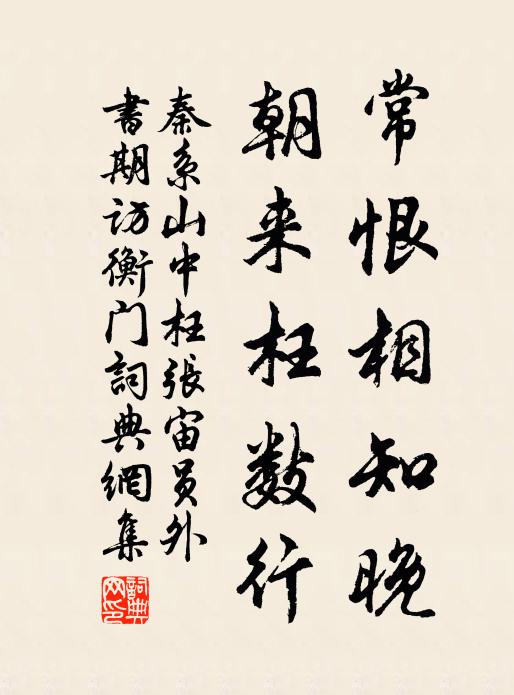 常恨相知晚
朝来枉数行
秦系山中枉張宙員外
書期访衡门詞典網集
詞典网印